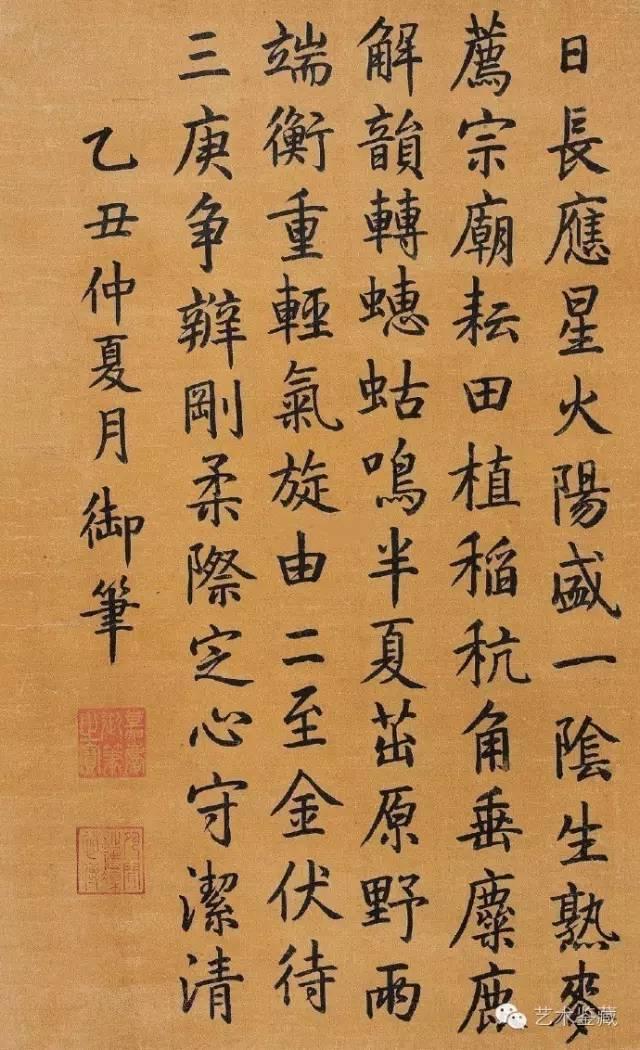 日長應星火陽盛一陰生熟麥
薦宗廟耘田植稻秔角垂麋鹿
解韻轉蟪蛄鳴半夏茁原野兩
端衡重輕氣旋由二至金伏待
三庚争辨剛柔際定心守潔清
乙丑仲夏月御筆
嘉慶御筆之寶
艺术鉴藏